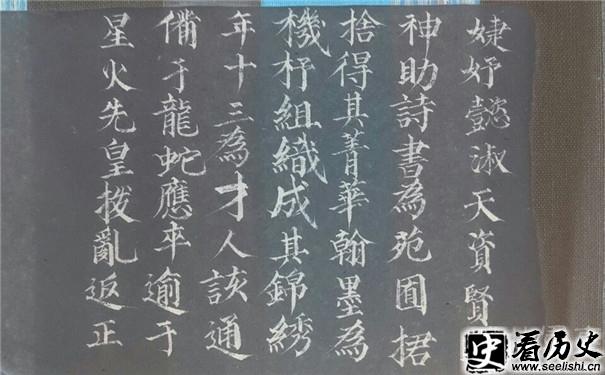 婕妤懿淑天資賢
神助詩書為苑囿捃
捨得其菁華翰墨為
機杼組織成其錦綉
年十三為才人該通
俻于龍蛇應卒逾于
星火先皇撥亂返正
史 看历史
www.seelishi.cn